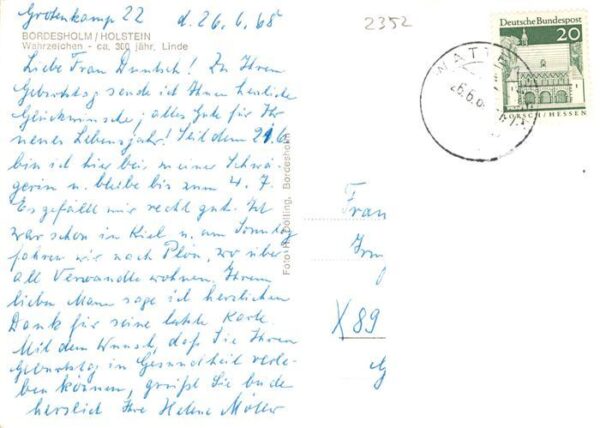 Grotenkamp 22 d. 26.6.68
2352
BORDESHOLM / HOLSTEIN
Wahrzeichen - ca. 300 jähr. Linde
Liebe Frau! Zu Ihrem
Geburtstag sende ich Ihnen herzliche
Glückwünsche; alles Gute für Ihr
neues Lebensjahr! Seit dem 21.6.
bin ich hier bei meiner Schwä-
gerin u. bleibe bis zum 4. 7.
Es gefällt mir recht gut. Ich
war schon in Kiel u. am Sonntag
fahren wir nach Plön, wo über
all Verwandte wohnen. Ihrem
lieben Mann sage ich herzlichen
Dank für seine letzte Karte.
Mit dem Wunsch, daß Sie Ihren
Geburtstag in Gesundheit verle-
ben können, grüßt Sie beide
herzlich Ihre Helene Möller
Foto H. Dölling, Bordesholm
Deutsche Bundespost
20
LORSCH/HESSEN
26.6.6
Frau
Irm
X89
G